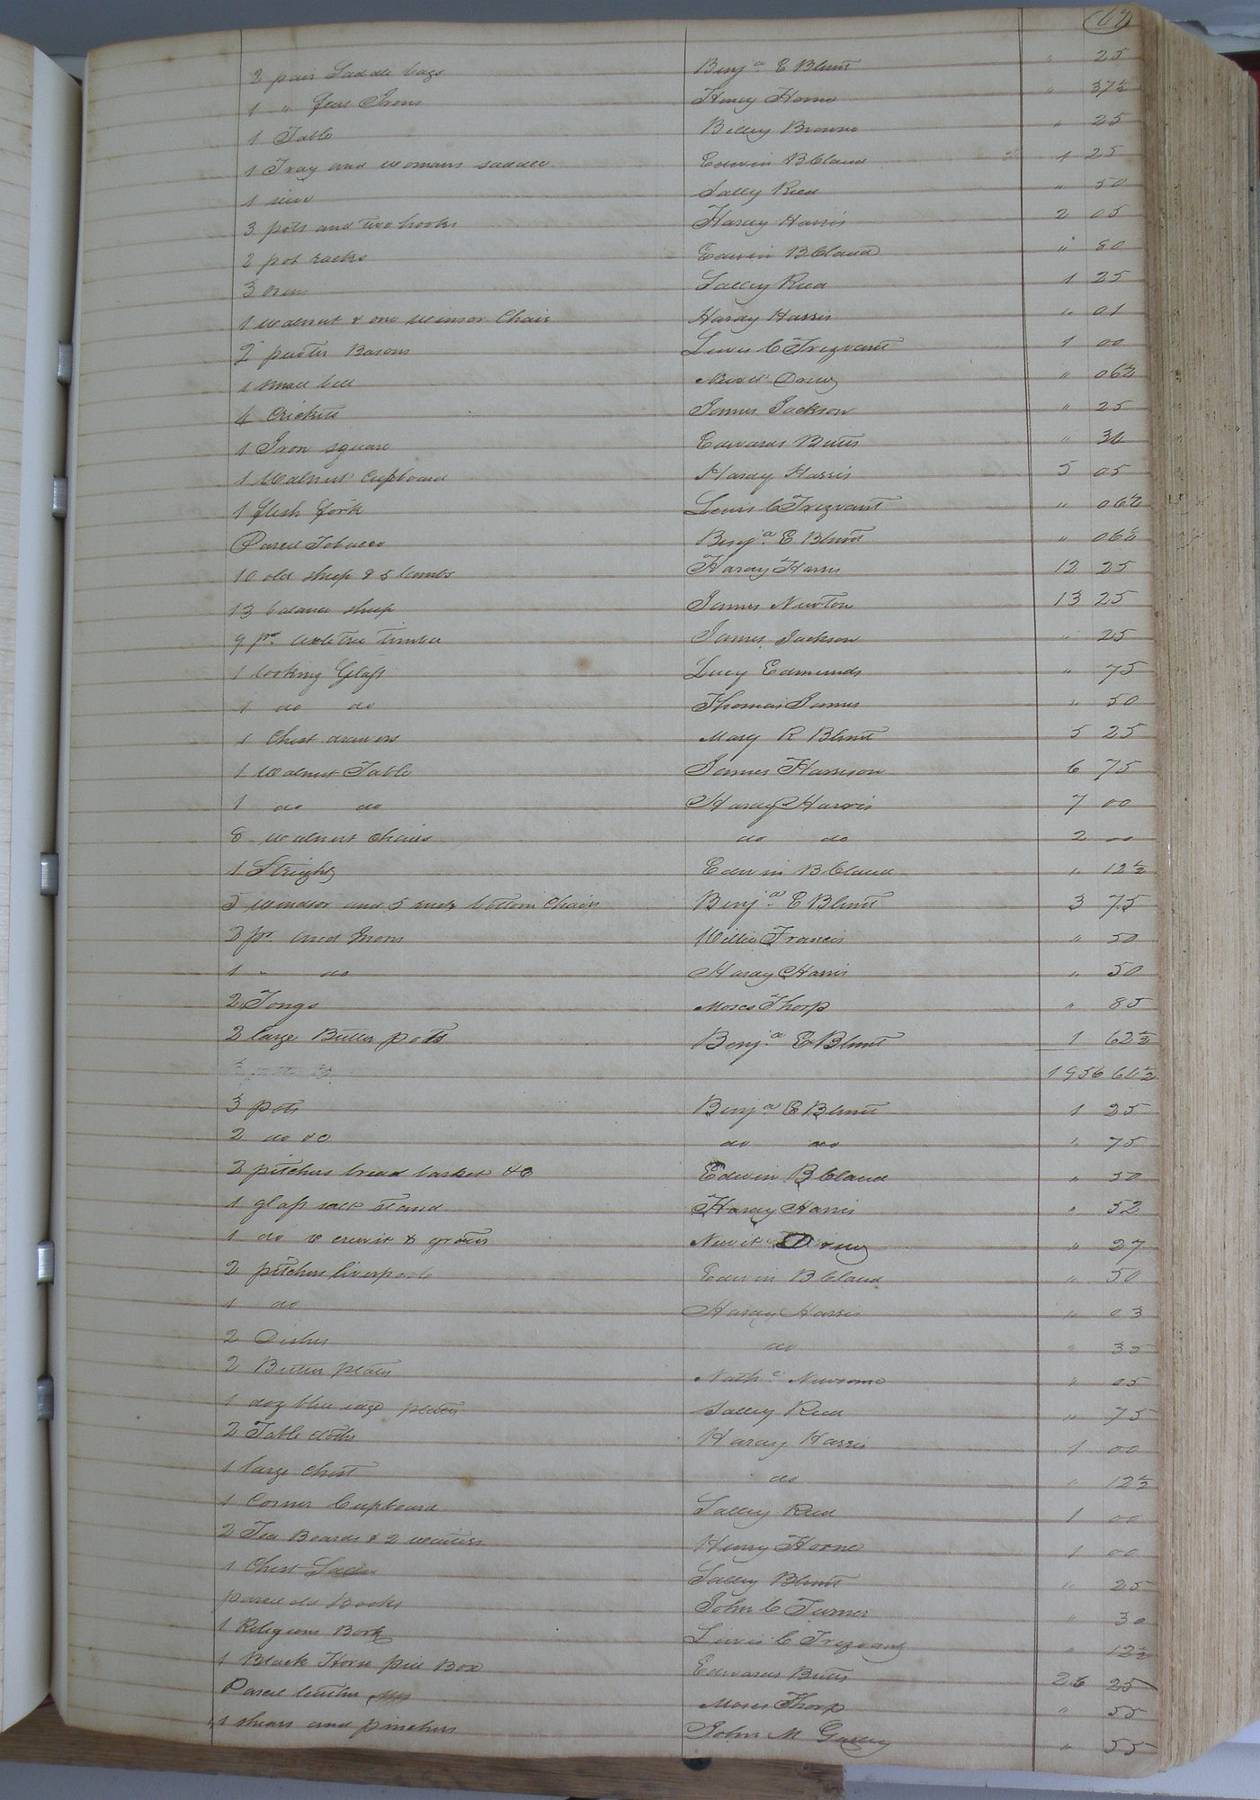 67
2 pair Saddle bags Benja E Blunt " 25
1 " Irons Henry Horne " 37½
1 Table Billey Browne " 25
1 Tray and womans saddle Edwin B Claud 1 25
1 Salley Reed " 50
3 pots and two hooks Hardy Harris 2 05
2 pot racks Edwin B Claud " 80
3 Salley Reed 1 25
1 walnut & one winsor Chair Hardy Harris " 01
2 pewter Basons Lewis C Trezvant 1 00
1 small bell Newit " 06¼
4 Crickets James Jackson " 25
1 Iron square Edwards Butts " 30
1 Walnut Cupboard Hardy Harris 5 05
1 flesh fork Lewis C Trezvant " 06¼
Parcel Tobacco Benja E Blunt " 06¼
10 old sheep & 5 lambs Hardy Harris 12 25
13 balance sheep James Newton 13 25
9 pr. axletree timber James Jackson " 25
1 looking Glass Lucy Edmunds " 75
1 do do Thomas James " 50
1 Chest drawers Mary R Blunt 5 25
1 Walnut Table James Harrison 6 75
1 do do Hardy Harris 7 00
8 walnut chairs do do 2 00
1 Edwin B Claud " 12½
5 windsor and 5 bottom Chairs Benja E Blunt 3 75
2 pr. and Irons Willie Francis " 50
1 " do Hardy Harris " 50
2 Tongs Moses Thorp " 85
2 large Butter pots Benja E Blunt 1 62½
1956 60½
3 pots Benja E Blunt 1 25
2 do &c do do " 75
2 pitchers bread basket &c Edwin B Claud " 50
1 glass salt stand Hardy Harris " 52
1 do & cruit & Newit " 27
2 pitchers liverpool Edwin B Claud " 50
1 do Hardy Harris " 03
2 Dishes do " 35
2 Butter plates Nathl Newsome " 05
1 doz blue edge plates Salley Reed " 75
2 Table cloths Hardy Harris 1 00
1 large chest do " 12½
1 Corner Cupboard Salley Reed 1 00
2 Tea Boards & 2 waiters Henry Horne 1 00
1 Chest Salley Blunt " 25
parcel old books John C Turner " 30
1 Religious Book Lewis C Trezvant " 12½
1 Black Horse Box Edwards Butts 26 25
Parcel leather Moses Thorp " 55
1 shears and pinchers John M " 55